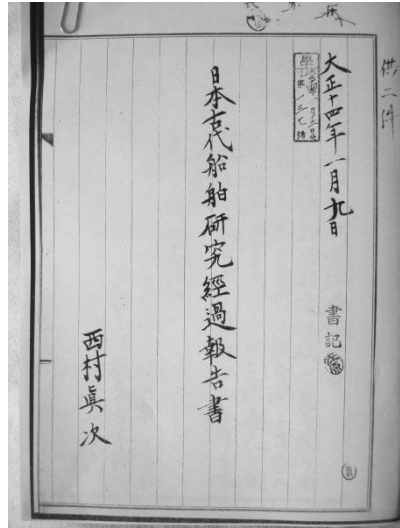 供二件
大正十四年一月九日
書記
日本古代船舶研究經過報告書
西村眞次